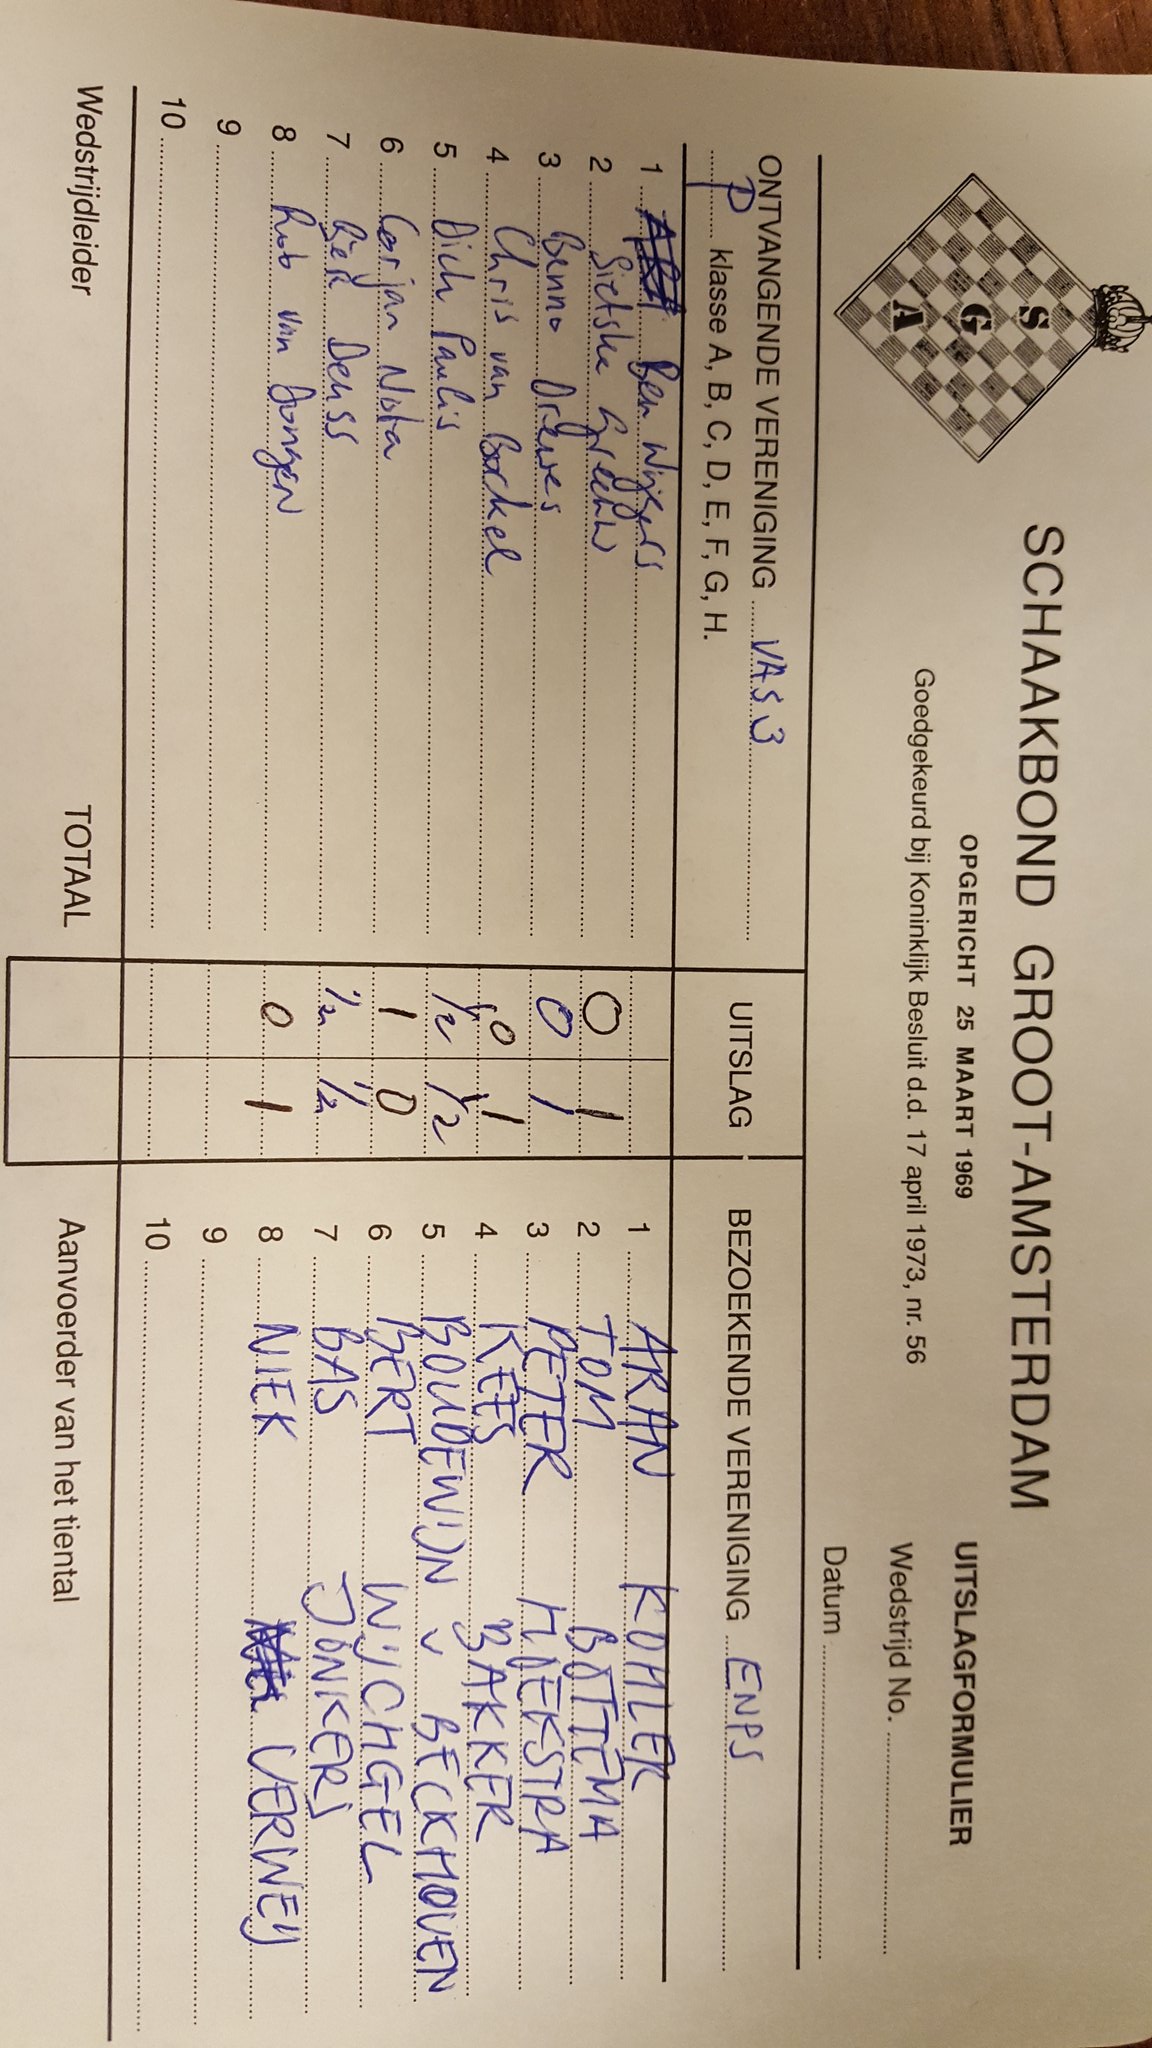 S
G
A
SCHAAKBOND GROOT-AMSTERDAM
OPGERICHT 25 MAART 1969
Goedgekeurd bij Koninklijk Besluit d.d. 17 april 1973, nr. 56
UITSLAGFORMULIER
Wedstrijd No.
Datum
ONTVANGENDE VERENIGING VAS 3 UITSLAG BEZOEKENDE VERENIGING ENPS
P klasse A, B, C, D, E, F, G, H.
1 Ben Wijgers 1 ARAN KOHLER
2 Sietske Greeuw 0 1 2 TOM BOTTEMA
3 Benno Drewes 0 1 3 PETER HOEKSTRA
4 Chris van Borkel 0 1 4 KEES BAKKER
5 Dick Paulis 1/2 1/2 5 BOUDEWIJN v BECKHOVEN
6 Corjan Nota 1 0 6 BERT WIJCHGEL
7 Deuss 1/2 1/2 7 BAS JONKERS
8 Rob van Dongen 0 1 8 NIEK VERWEIJ
9 9
10 10
Wedstrijdleider TOTAAL Aanvoerder van het tiental